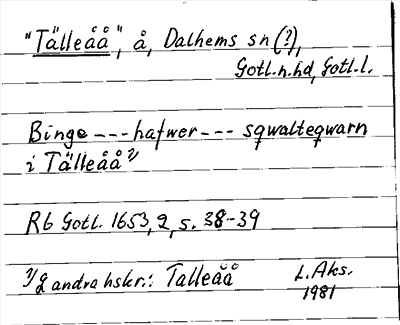 "Tälleåå", å, Dalhems sn (?),
Gotl.n.hd, Gotl.l.
Binge --- hafwer --- sqwalteqwarn
i Tälleåå 1)
Rb Gotl. 1653, 2, s. 38-39
1) 2 andra hskr.: Talleåå
L. Aks.
1981